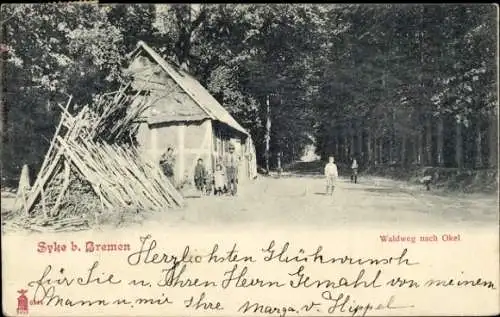 Syke b. Bremen
Waldweg nach Okel
Herzlichsten Glückwunsch
für Sie u. Ihren Herrn Gemahl von meinem
Mann u. mir Ihre Marga v. d. Hippel